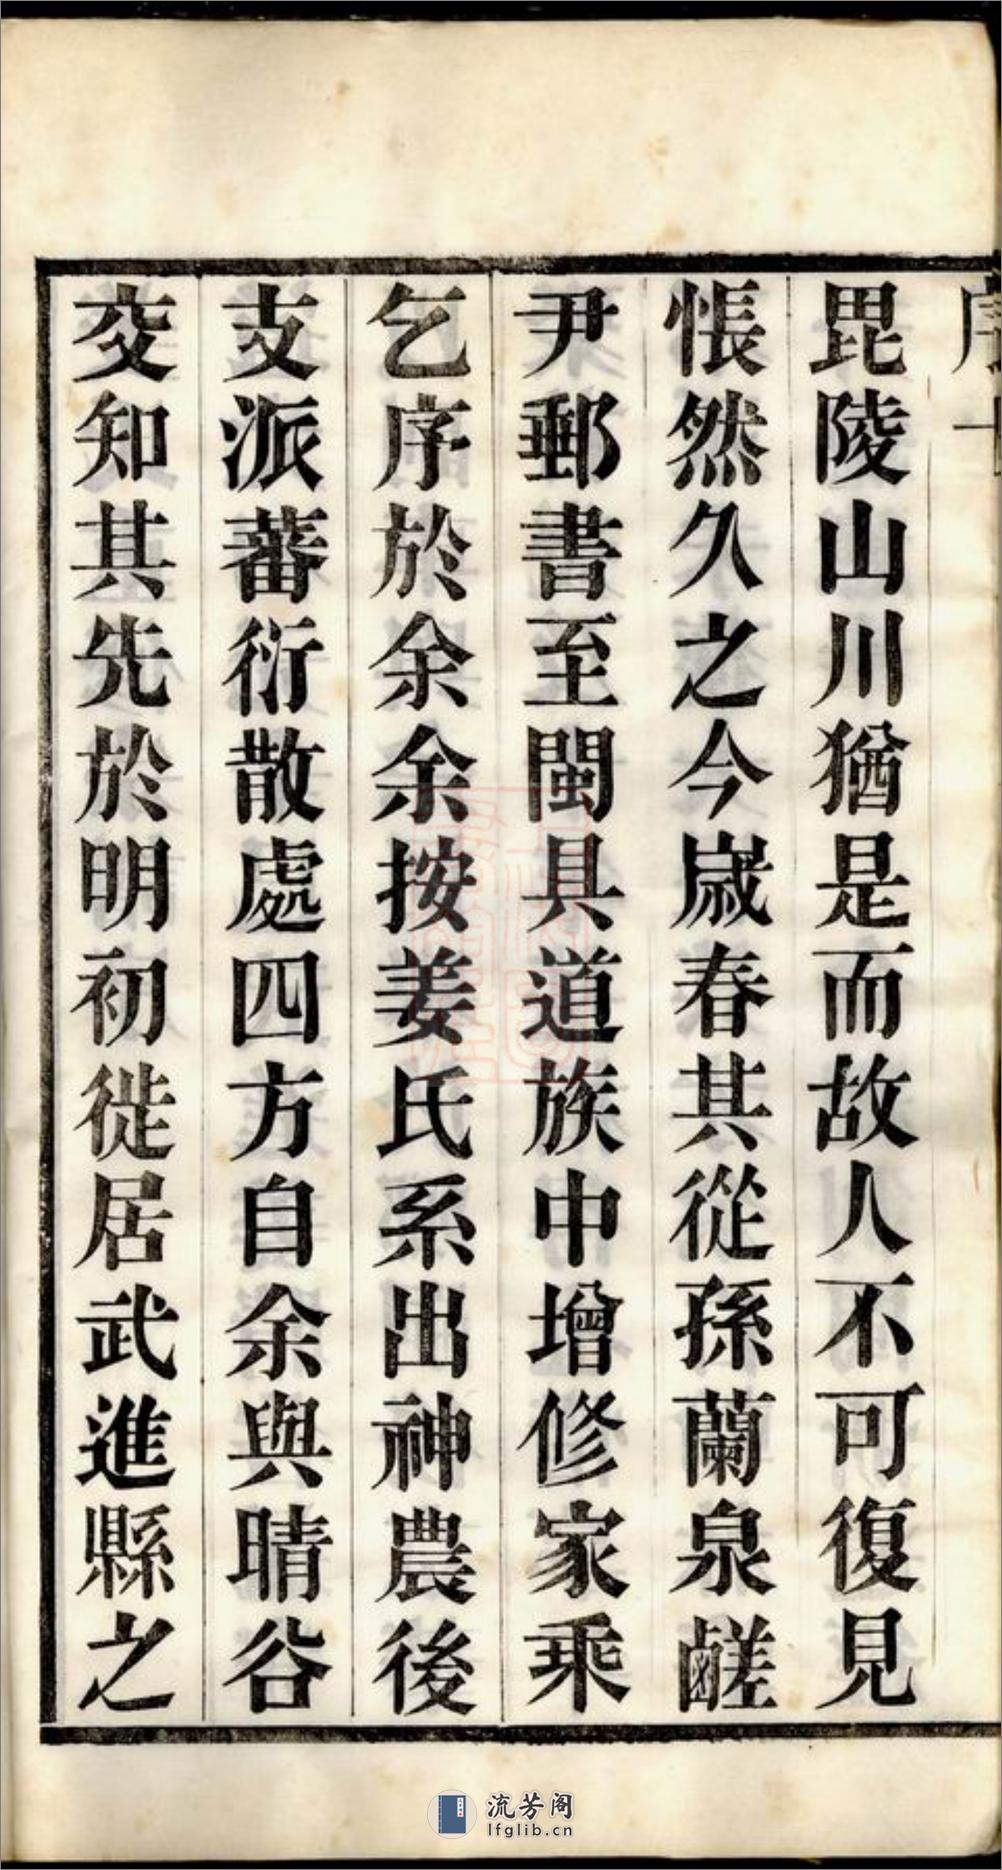 毘陵山川猶是而故人不可復見
悵然久之今嵗春其從孫蘭泉鹺
尹郵書至閩具道族中增修家乘
乞序於余余按姜氏系出神農後
支派蕃衍散處四方自余與晴谷
交知其先於明初徙居武進縣之
流芳阁
lfglib.cn